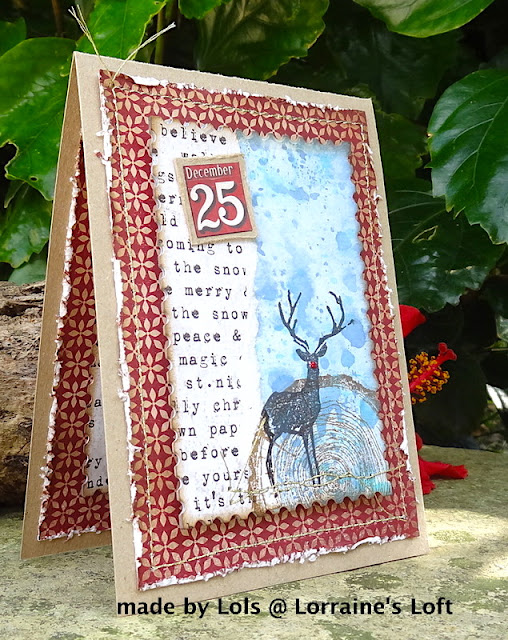 believe
December
25
coming to
the snow
e merry &
the snow
peace &
magic
st.nic
lly chr
wn pap
before
e yours
it's t
made by Lols @ Lorraine's Loft